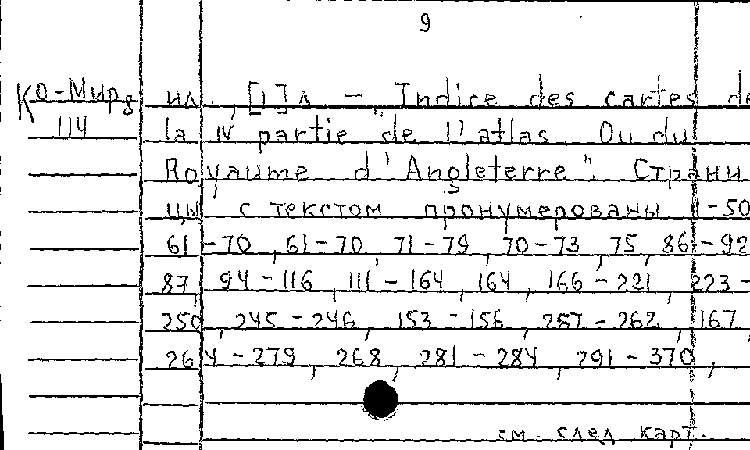 9
Ко-Мирз ил., [1]л – „Indice des cartes de
114 la IV partie de l'atlas Ou du
Royaume d'Angleterre". Страни
цы с текстом пронумерованы 1-50
61-70, 61-70, 71-79, 70-73, 75, 86-92
87, 94-116, 111-164, 164, 166-221, 223-
250, 245-246, 153-156, 257-262, 167
264-279, 268, 281-284, 291-370,
см. след. карт.